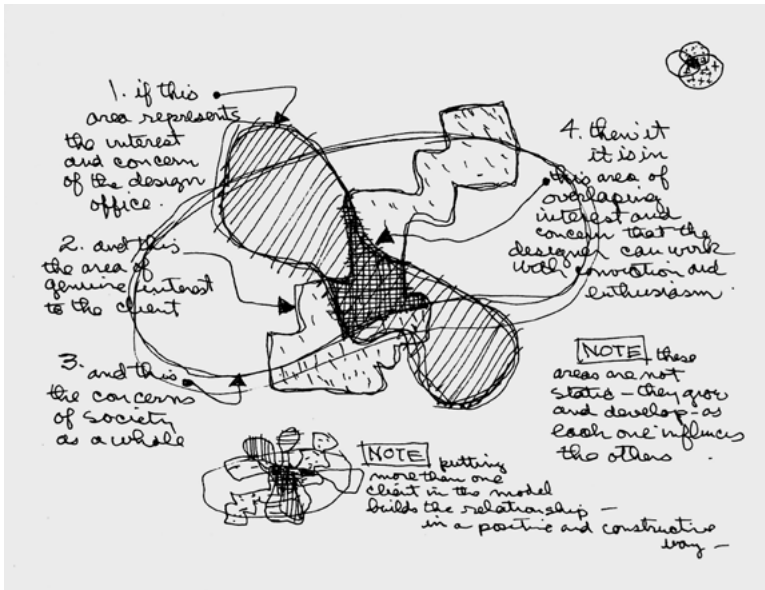 1. if this
area represents
the interest
and concern
of the design
office.
2. and this
the area of
genuine interest
to the client
3. and this
the concerns
of society
as a whole
4. then it
it is in
this area of
overlaping
interest and
concern that the
designer can work
with conviction and
enthusiasm.
NOTE these
areas are not
static — they grow
and develop — as
each one influences
the others.
NOTE putting
more than one
client in the model
builds the relationship —
in a positive and constructive
way —